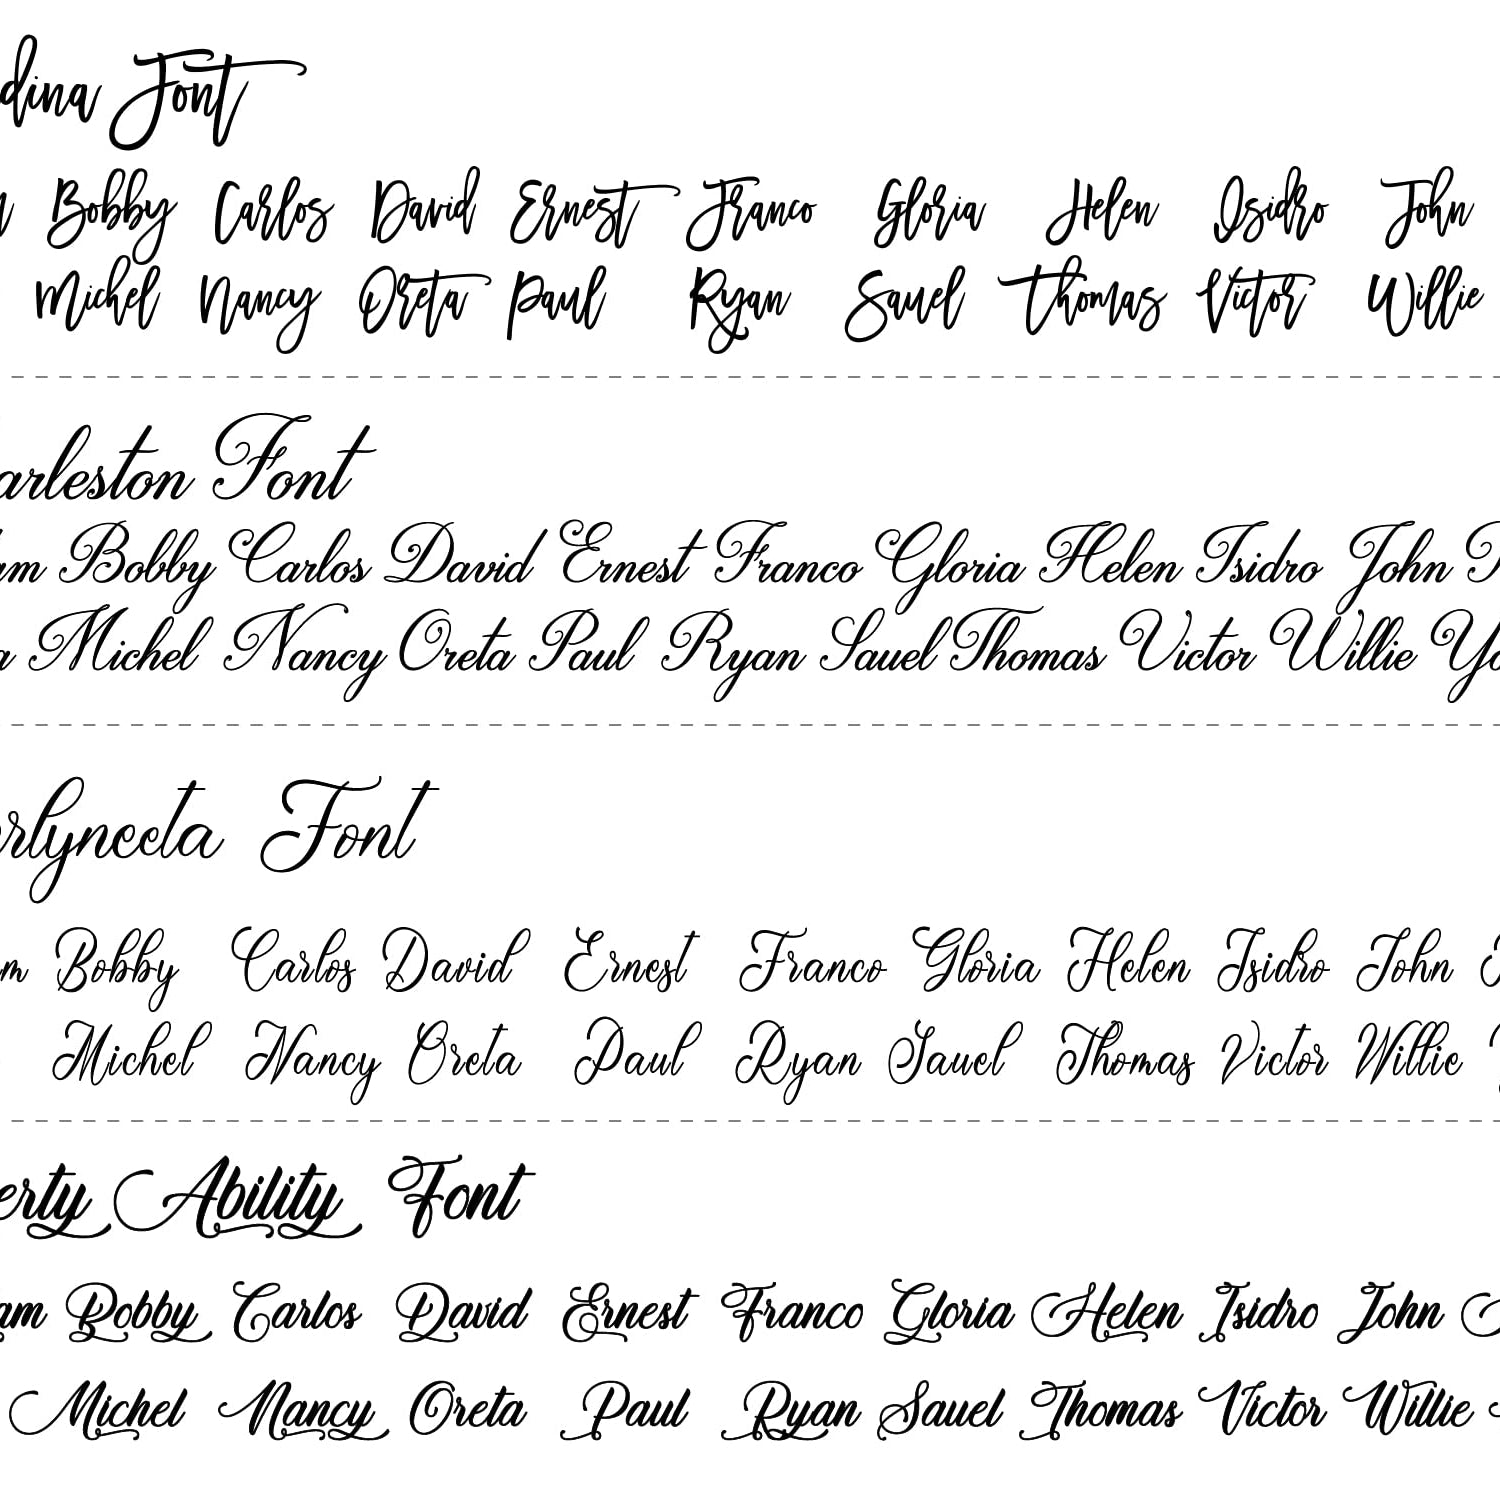 dina Font
Bobby Carlos David Ernest Franco Gloria Helen Isidro John
Michel Nancy Oreta Paul Ryan Sauel Thomas Victor Willie
arleston Font
am Bobby Carlos David Ernest Franco Gloria Helen Isidro John
a Michel Nancy Oreta Paul Ryan Sauel Thomas Victor Willie Yo
rlyneeta Font
m Bobby Carlos David Ernest Franco Gloria Helen Isidro John
Michel Nancy Oreta Paul Ryan Sauel Thomas Victor Willie
erty Ability Font
am Bobby Carlos David Ernest Franco Gloria Helen Isidro John
Michel Nancy Oreta Paul Ryan Sauel Thomas Victor Willie